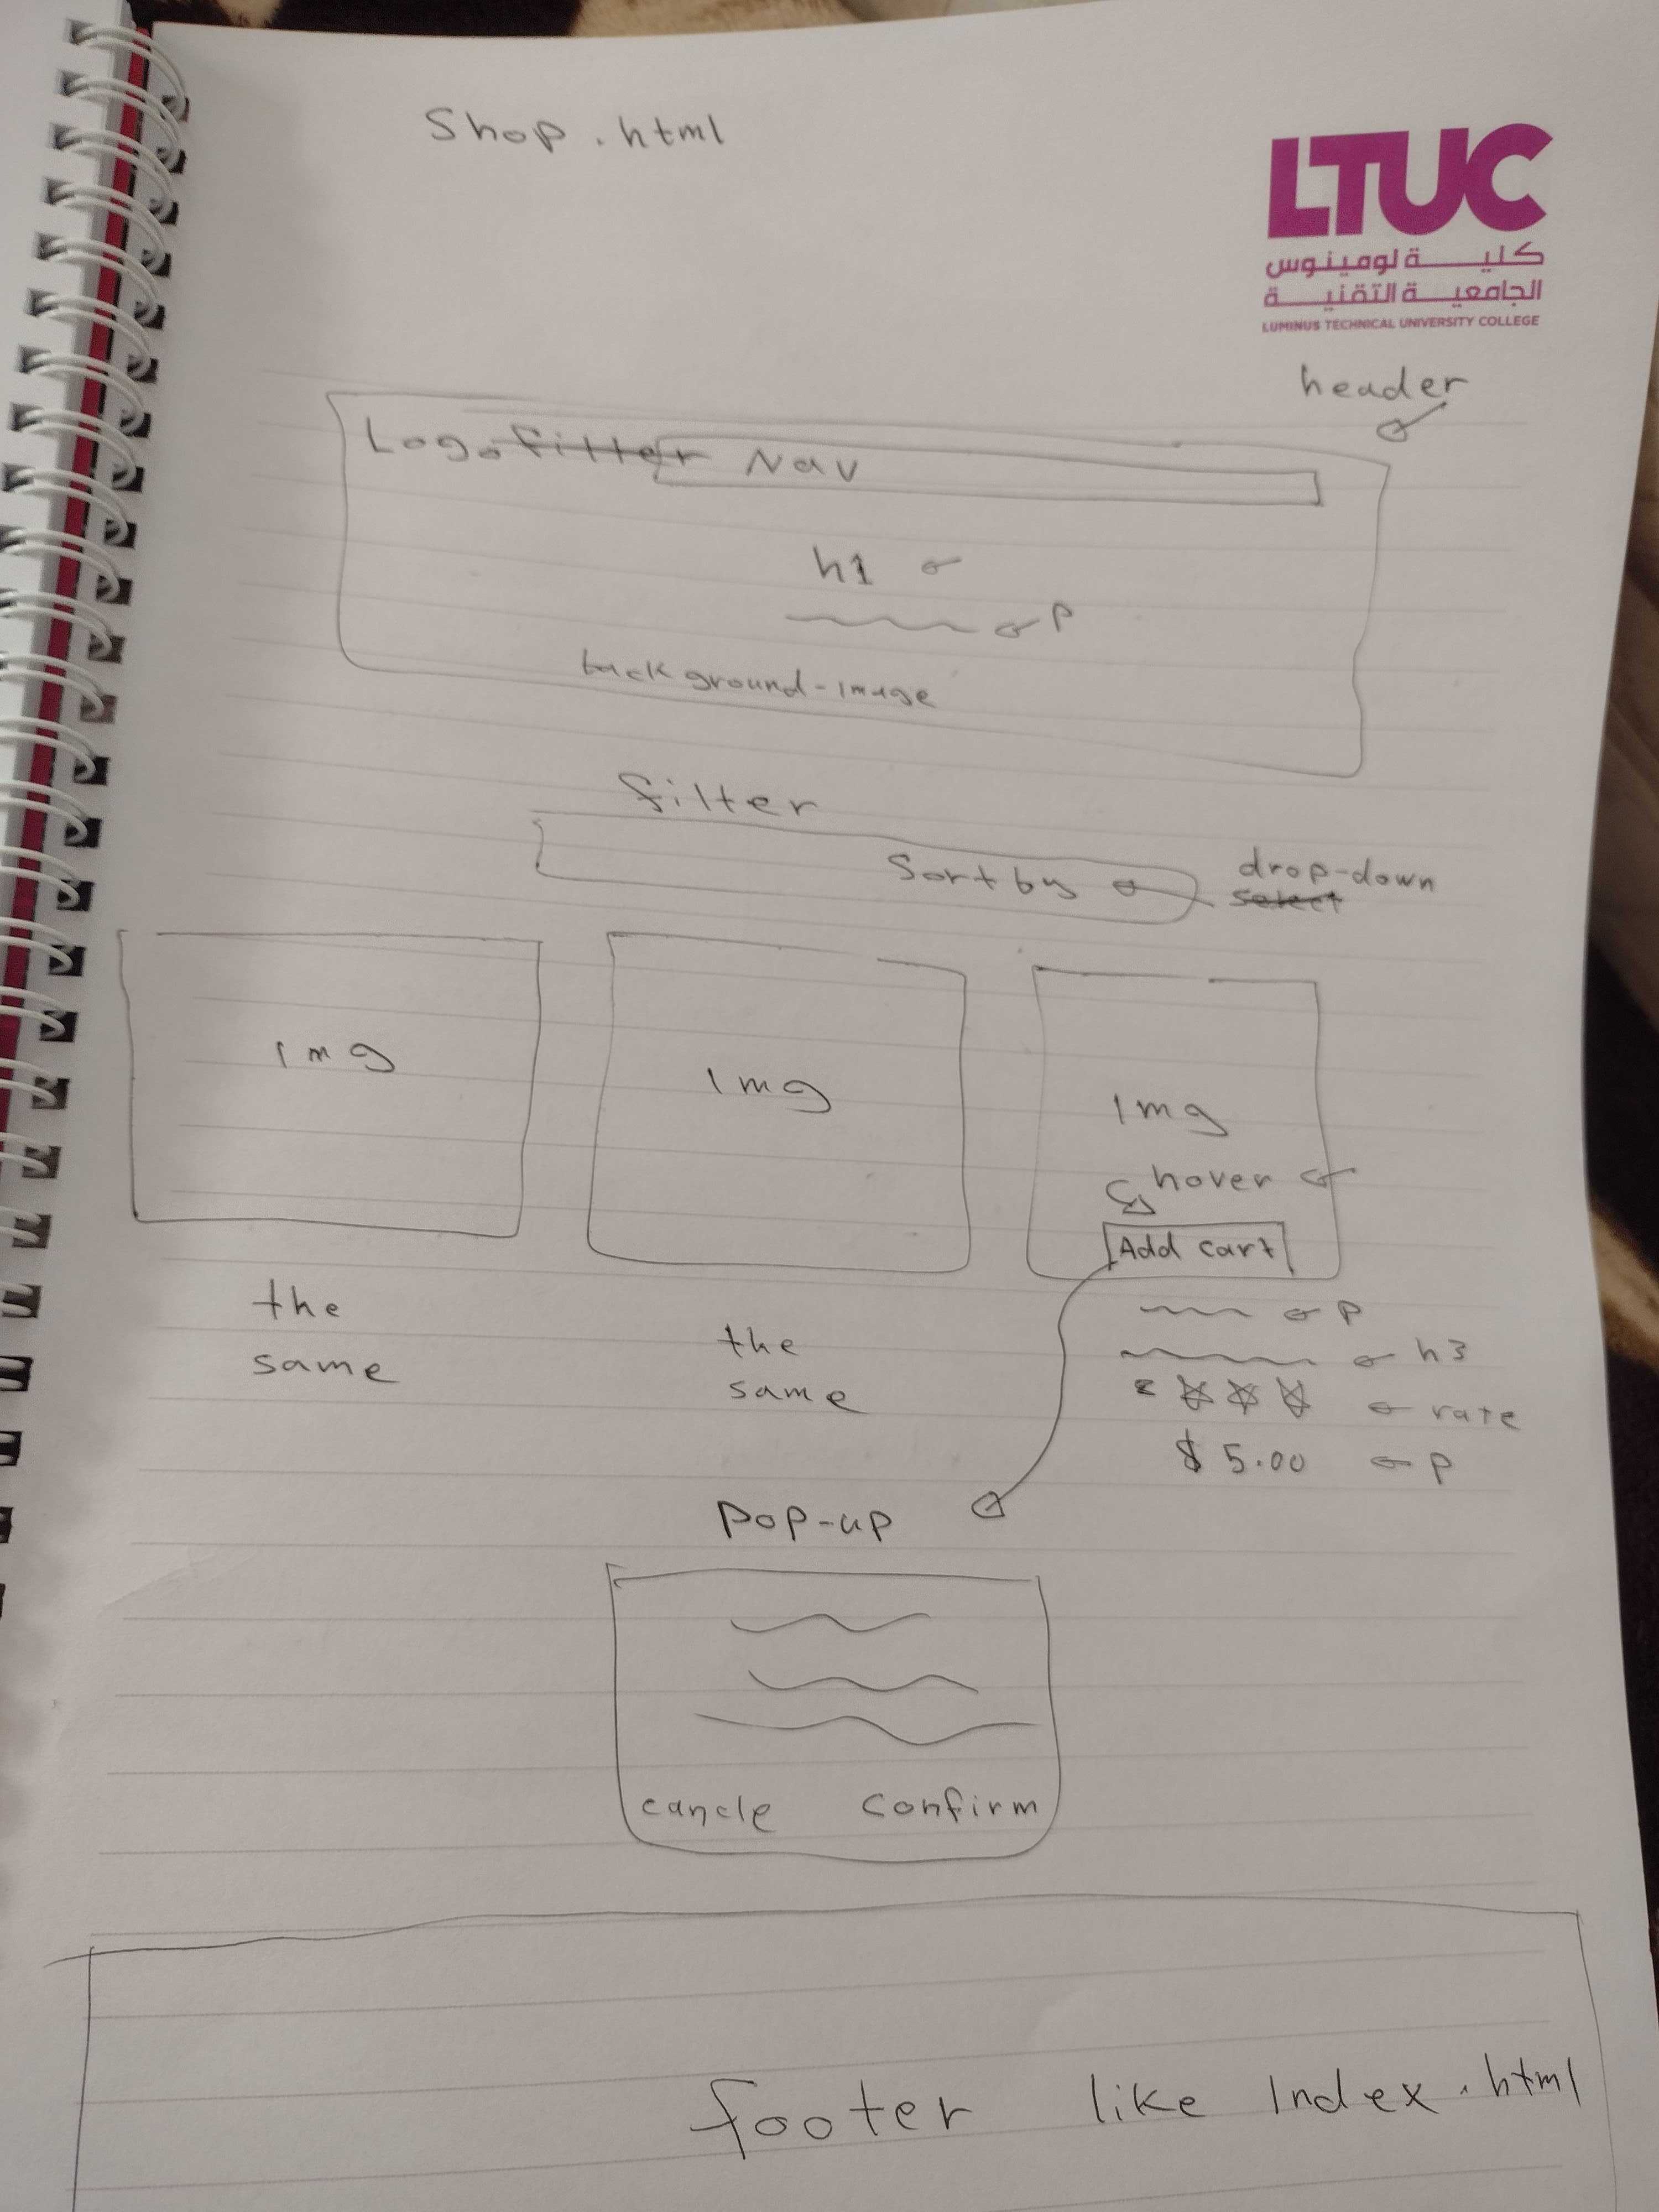 Shop.html
LTUC
كليـــــة لومينوس
الجامعيـــة التقنيـــة
LUMINUS TECHNICAL UNIVERSITY COLLEGE
header
Logo filter Nav
h1
p
background-image
filter
Sort by
drop-down
select
img
img
img
hover
Add cart
p
the
same
the
same
h3
rate
$ 5.00
p
pop-up
cancle confirm
footer like Index.html